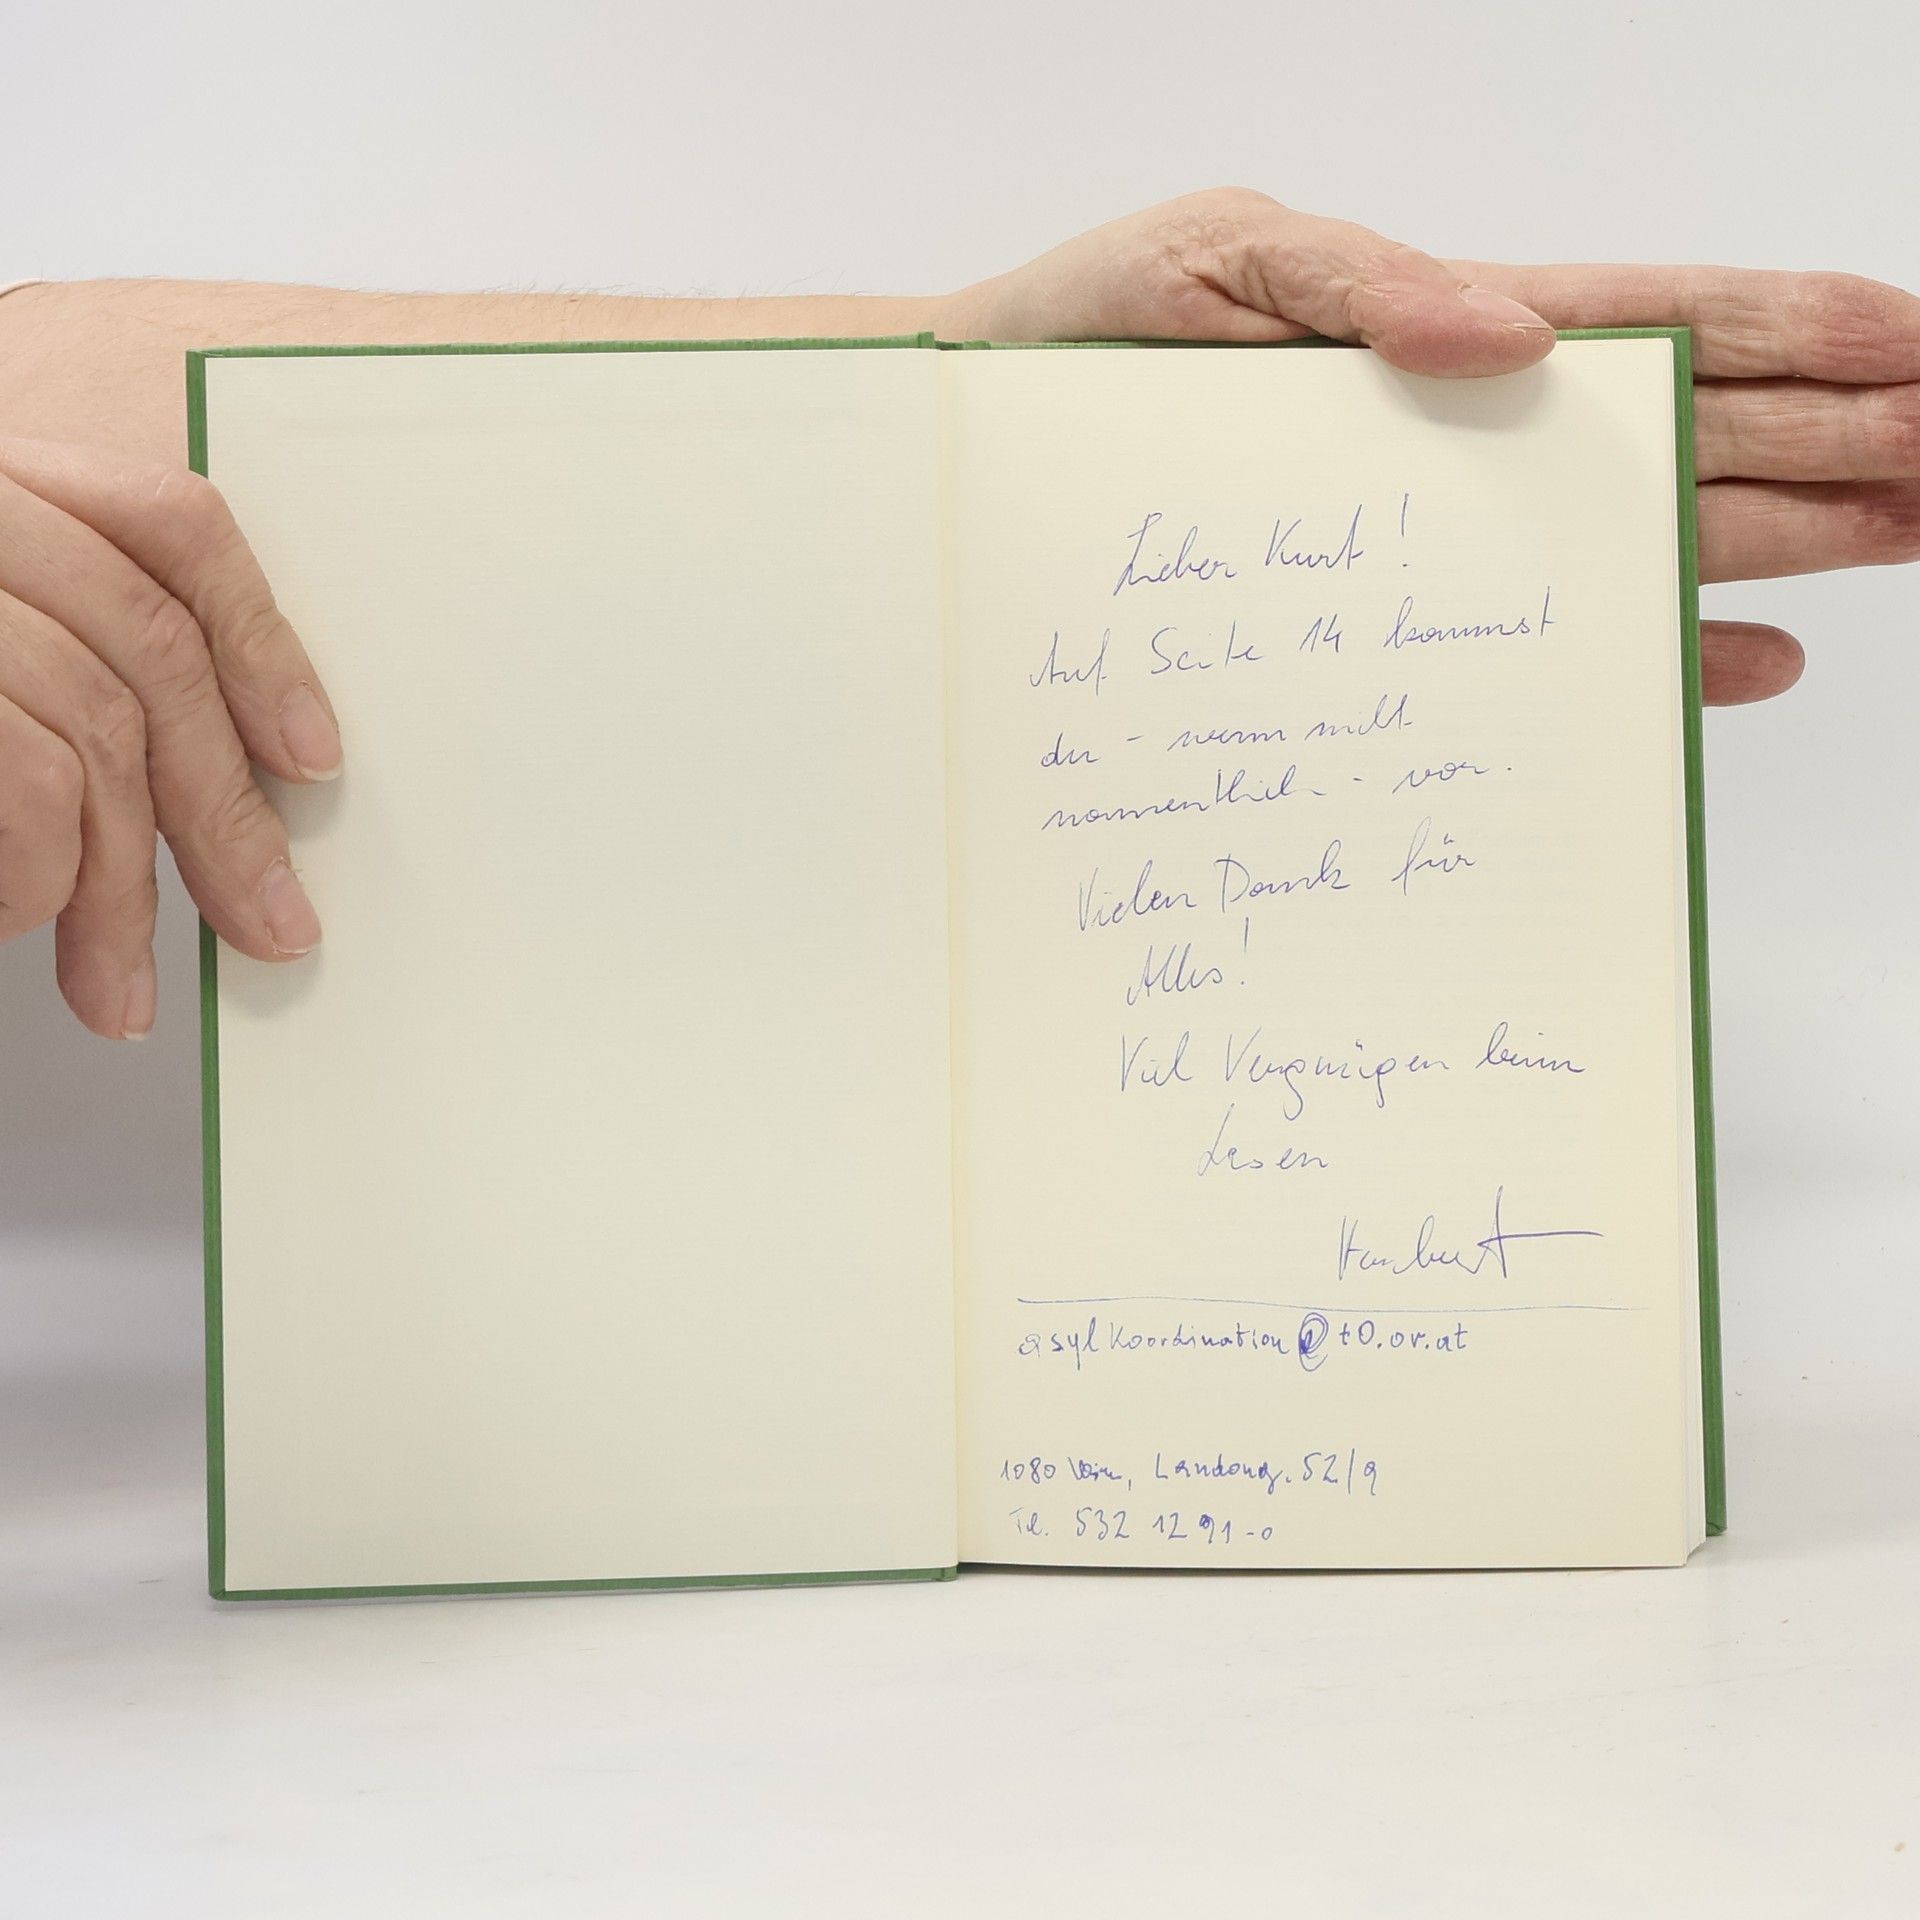 Lieber Kurt!
Auf Seite 14 kommst
du - wenn nicht
namentlich - vor.
Vielen Dank für
Alles!
Viel Vergnügen beim
Lesen
Herbert
asylkoordination@t0.or.at
1080 Wien, Laudong. 52/9
Tel. 532 12 91-0